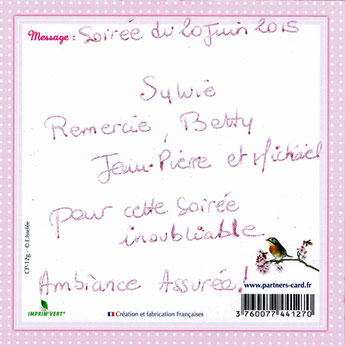 Message : Soirée du 20 Juin 2015
Sylvie
Remercie, Betty
Jean-Pierre et Michael
pour cette soirée
inoubliable
Ambiance Assurée !
CP-12g - ©
www.partners-card.fr
IMPRIM'VERT®
Création et fabrication Françaises
3 760077 441270